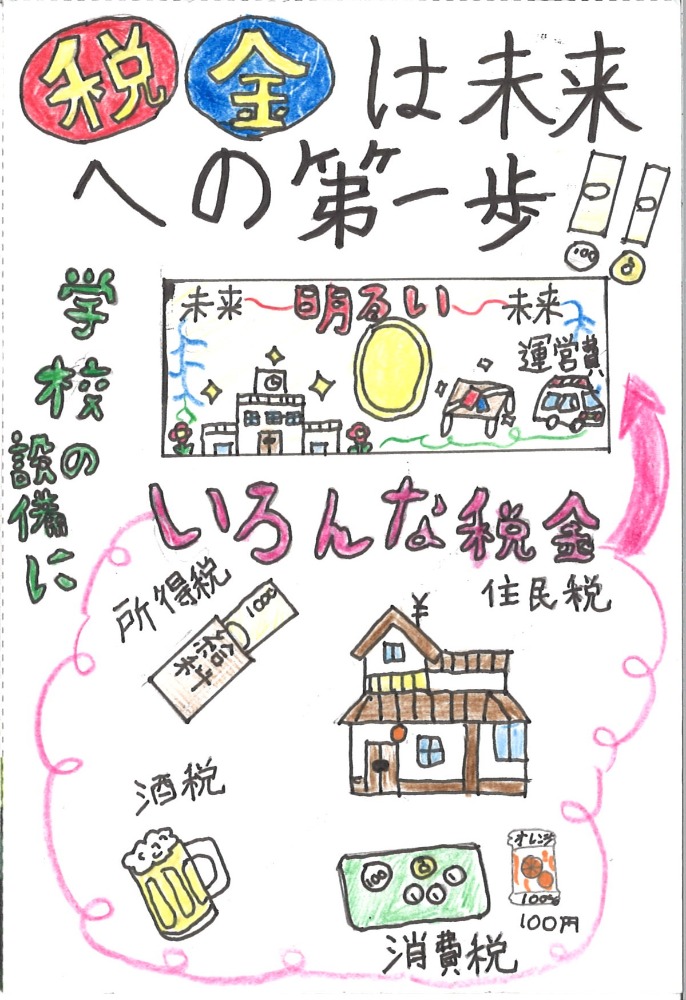 税金は未来
への第一歩!!
100
学校
の
設備に
未来 明るい 未来
運営費
いろんな税金
所得税
1000
給料
住民税
¥
酒税
100
1
1
1
オレンジ
100%
100円
消費税